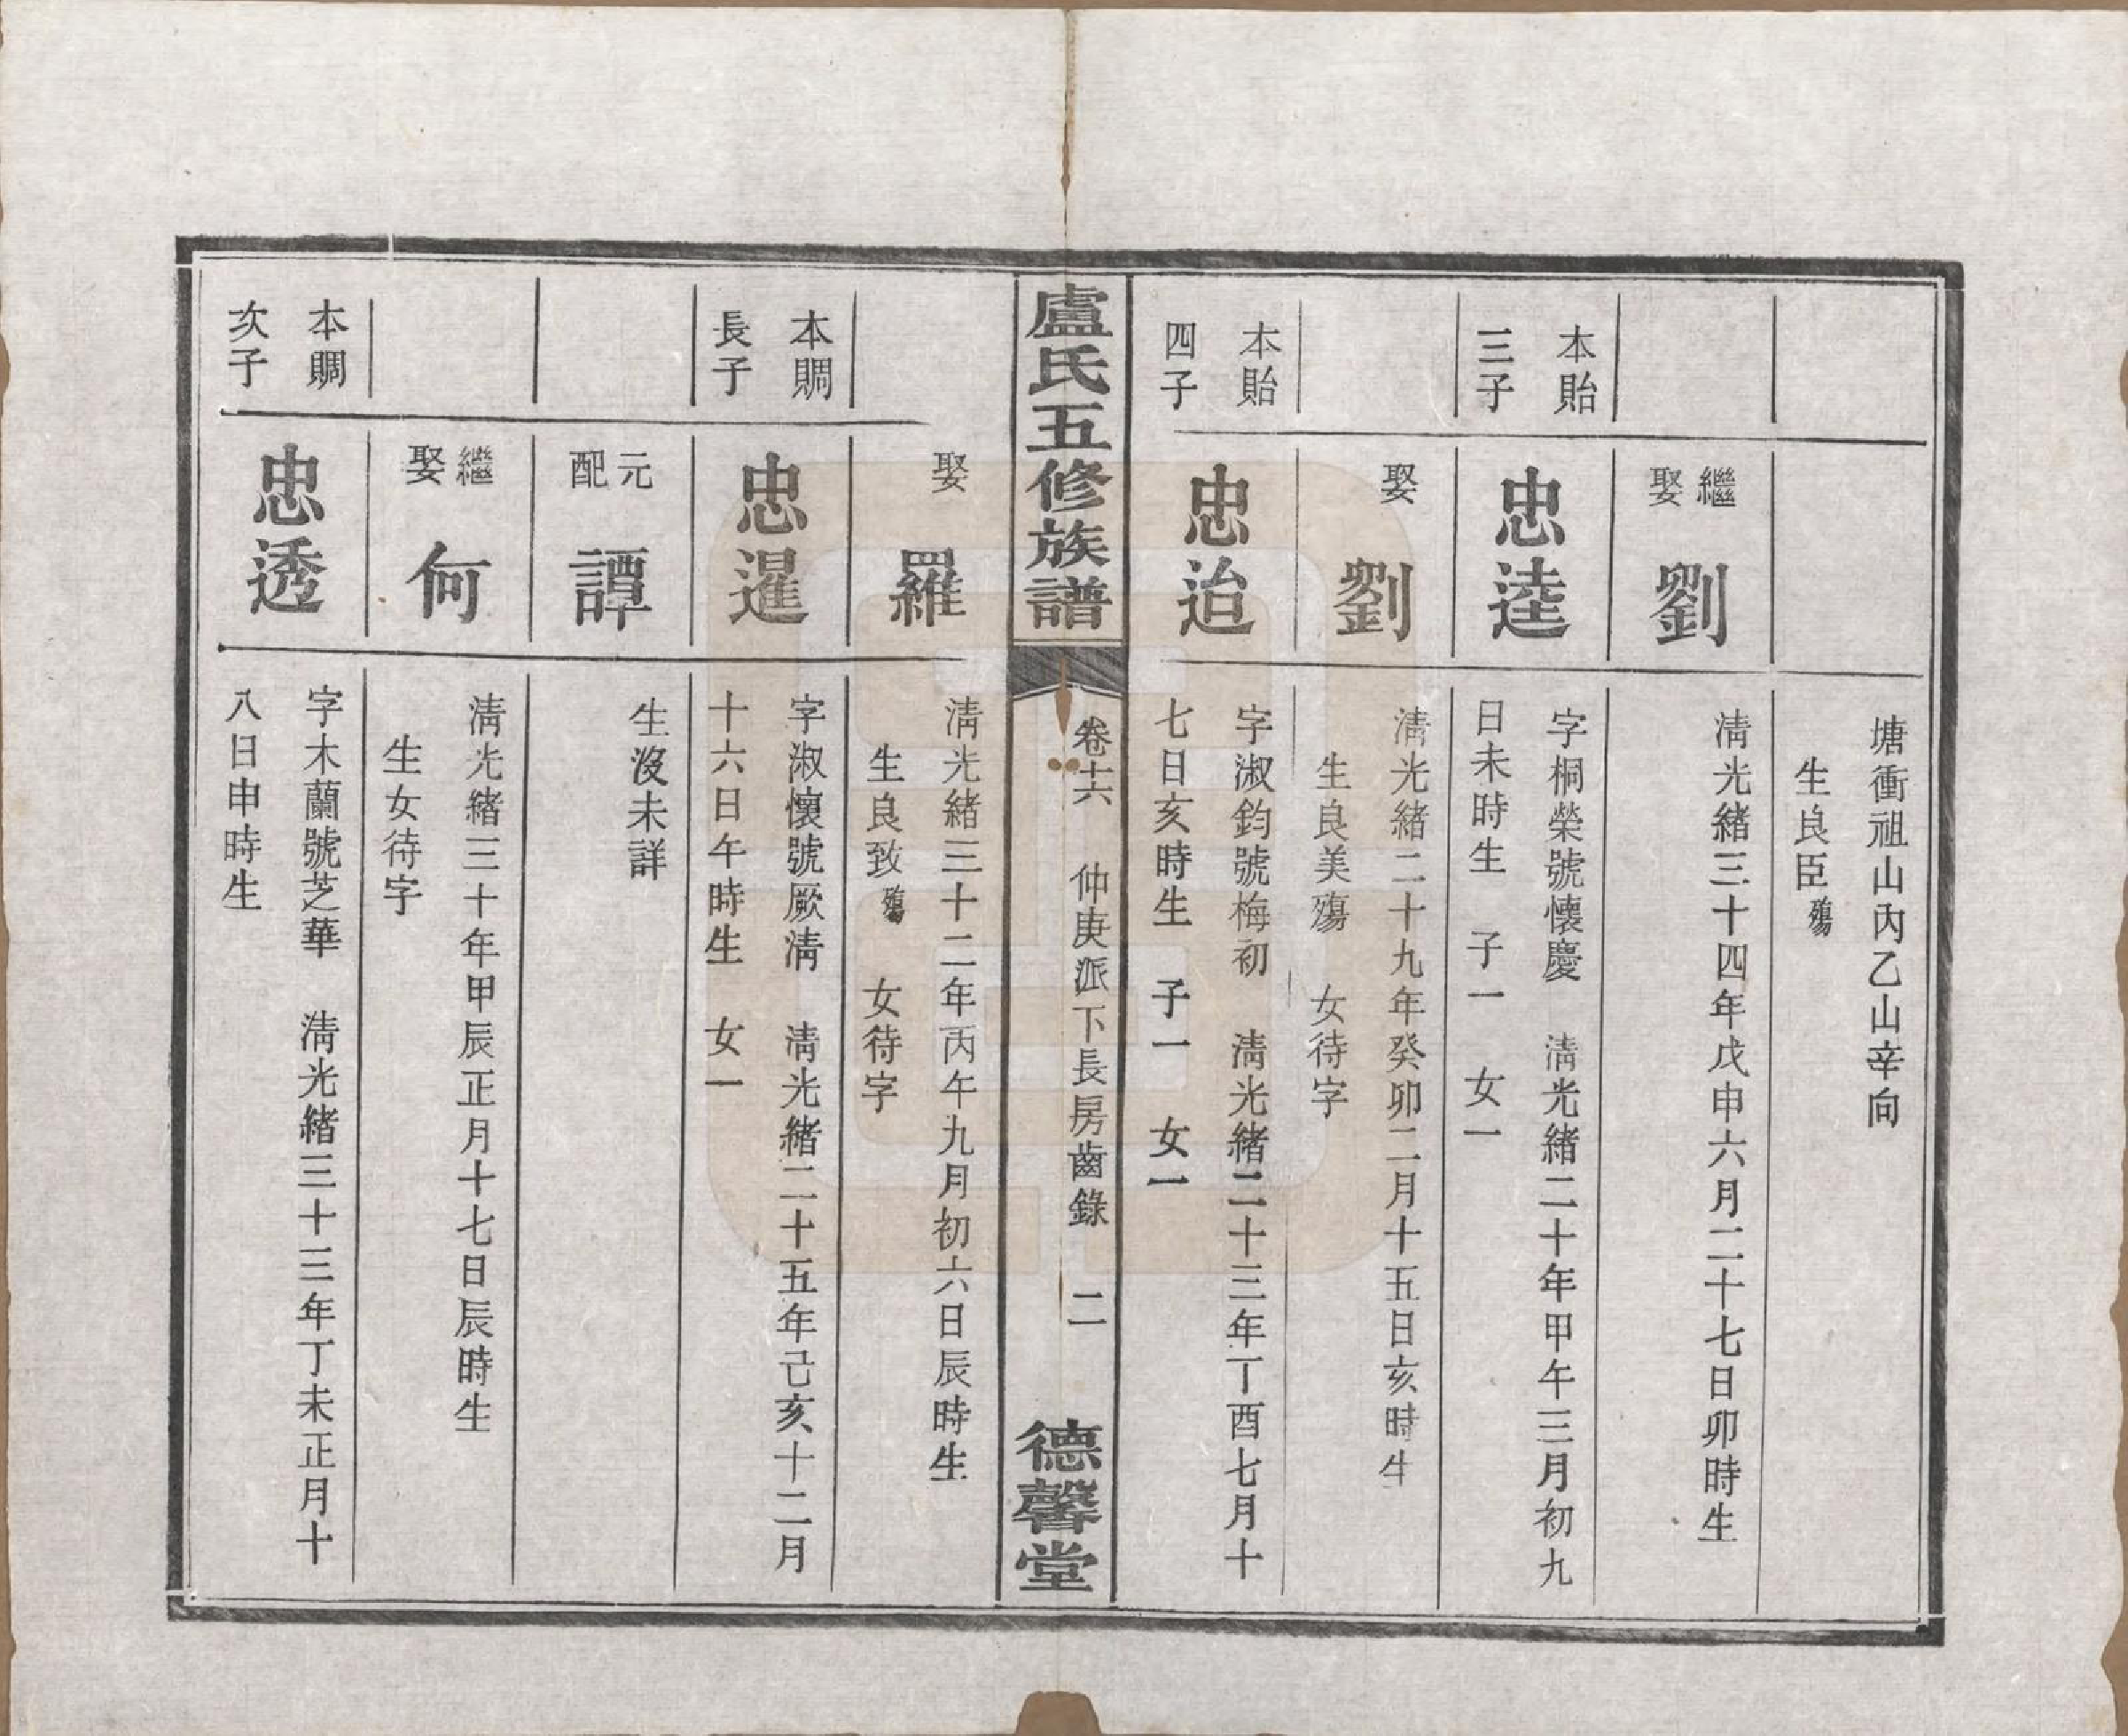 塘衝祖山內乙山辛向
生良臣殤
繼娶
劉
淸光緖三十四年戊申六月二十七日卯時生
本貽
三子
忠逵
字桐榮號懷慶　淸光緖二十年甲午三月初九
日未時生　子一　女一
娶
劉
淸光緖二十九年癸卯二月十五日亥時生
生良美殤　女待字
本貽
四子
忠迨
字淑鈞號梅初　淸光緖二十三年丁酉七月十
七日亥時生　子一　女一
盧氏五修族譜
卷六　仲庚派下長房齒錄　二
德馨堂
娶
羅
淸光緖三十二年丙午九月初六日辰時生
生良致殤　女待字
本賙
長子
忠暹
字淑懷號厥淸　淸光緖二十五年己亥十二月
十六日午時生　女一
元配
譚
生沒未詳
繼娶
何
淸光緖三十年甲辰正月十七日辰時生
生女待字
本賙
次子
忠透
字木蘭號芝華　淸光緖三十三年丁未正月十
八日申時生